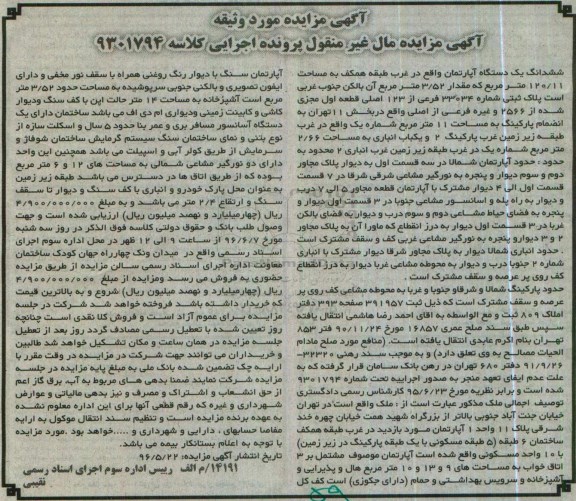 آگهی مزایده مورد وثیقه
آگهی مزایده مال غیر منقول پرونده اجرایی کلاسه ۹۳۰۱۷۹۴
ششدانگ یک دستگاه آپارتمان واقع در غرب طبقه همکف به مساحت
۱۲۰/۱۱ متر مربع که مقدار ۳/۵۲ متر مربع آن بالکن جنوب غربی
است پلاک ثبتی شماره ۳۳۰۳۴ فرعی از ۱۲۳ اصلی قطعه اول مجزی
شده از ۲۵۶۶ و غیره فرعی از اصلی واقع دربخش ۱۱ تهران به
انضمام پارکینگ به مساحت ۱۱ متر مربع شماره یک واقع در غرب
طبقه زیر زمین غرب پارکینگ ۲ و یکباب انباری به مساحت ۲/۶۶
متر مربع شماره یک در غرب طبقه زیر زمین غرب انباری ۲ محدود به
حدود : حدود آپارتمان شمالا در سه قسمت اول به دیوار پلاک مجاور
دوم و سوم دیوار و پنجره به نورگیر مشاعی شرقی شرقا در ۷ قسمت
قسمت اول الی ۴ دیوار مشترک با آپارتمان قطعه مجاور ۵ الی ۷ درب
و دیوار به راه پله و آسانسور مشاعی جنوبا در ۳ قسمت اول دیوار و
پنجره به فضای حیاط مشاعی دوم و سوم درب و دیوار به فضای بالکن
غربا در ۳ قسمت اول دیوار به درز انقطاع که ماورا آن به پلاک مجاور
۲ و ۳ دیوار و پنجره به نورگیر مشاعی غربی کف و سقف مشترک است
. حدود انباری شمالا دیوار به پلاک مجاور شرقا دیوار مشترک با انباری
شماره ۲ جنوبا درب و دیوار به محوطه مشاعی غربا دیوار به درز انقطاع
کف روی پر عرصه و سقف مشترک است .
حدود پارکینگ شمالا و شرقا و جنوبا و غربا به محوطه مشاعی کف روی پر
عرصه و سقف مشترک است که ذیل ثبت ۳۹۱۹۵۷ صفحه ۳۹۳ دفتر
املاک ۸۰۹ ثبت و مع الواسطه به اقای احمد رضا هاشمی انتقال یافته
سپس طبق سند صلح عمری ۱۶۸۵۷ مورخ ۹۰/۱۱/۲۴ دفتر ۸۵۳
تهران بنام اکرم عابدی انتقال یافته است. (منافع مورد صلح مادام
الحیات مصالح به وی تعلق دارد) و به موجب سند رهنی ۳۲۳۲۰-
۹۱/۹/۲۶ دفتر ۶۸۰ تهران در رهن بانک سامان قرار گرفته که به
علت عدم ایفای تعهد منجر به صدور اجراییه تحت شماره ۹۳۰۱۷۹۴
شده است و برابر نظریه مورخ ۹۵/۶/۲۳ کارشناس رسمی دادگستری
توصیف اجمالی ملک مذکور عبارت است از : ملک واقع است در تهران
خیابان جنت آباد جنوبی بالاتر از بزرگراه شهید همت خیابان چهره خند
شرقی پلاک ۱۱ واحد ۱ آپارتمان مورد بازدید در غرب طبقه همکف
ساختمان ۶ طبقه (۵ طبقه مسکونی با یک طبقه پارکینگ در زیر زمین)
با ۱۰ واحد مسکونی واقع شده است آپارتمان موصوف مشتمل بر ۳
اتاق خواب به مساحت های ۹ و ۱۳ و ۱۰ متر مربع هال و پذیرایی و
آشپزخانه و سرویس بهداشتی و حمام (دارای جکوزی) است کف کل
آپارتمان سنگ با دیوار رنگ روغنی همراه با سقف نور مخفی و دارای
ایفون تصویری و بالکنی جنوبی سرپوشیده به مساحت حدود ۳/۵۲ متر
مربع است آشپزخانه به مساحت ۱۴ متر حالت اپن با کف سنگ و دیوار
کاشی و کابینت زمینی و دیواری ام دی اف می باشد ساختمان دارای یک
دستگاه آسانسور مسافر بری و عمر بنا حدود ۵ سال و اسکلت سازه از
نوع بتنی و نمای ساختمان سنگ سیستم گرمایش ساختمان شوفاژ و
سرمایش از طریق کولر آبی و اسپیلت می باشد همچنین این واحد
دارای دو نورگیر مشاعی شمالی به مساحت های ۱۲ و ۶ متر مربع
بوده که از طریق اتاق ها در دسترس می باشد طبقه زیر زمین
به عنوان محل پارک خودرو و انباری با کف سنگ و دیوار تا سقف
سنگ و ارتفاع ۲/۴ متر می باشند و به مبلغ ۴/۹۰۰/۰۰۰/۰۰۰
ریال (چهارمیلیارد و نهصد میلیون ریال) ارزیابی شده است و جهت
وصول طلب بانک و حقوق دولتی کلاسه فوق الذکر در روز سه شنبه
مورخ ۹۶/۶/۷ از ساعت ۹ الی ۱۲ ظهر در محل اداره سوم اجرای
اسناد رسمی واقع در میدان ونک چهارراه جهان کودک ساختمان
معاونت اداره اجرای اسناد رسمی سالن مزایده از طریق مزایده
حضوری به فروش می رسد و مزایده از مبلغ ۴/۹۰۰/۰۰۰/۰۰۰
ریال (چهارمیلیارد و نهصد میلیون ریال) شروع و به بالاترین قیمت
که خریدار داشته باشد فروخته خواهد شد شرکت در جلسه
مزایده برای عموم آزاد است و فروش کلا نقدی است چنانچه
روز تعیین شده با تعطیل رسمی مصادف گردد روز بعد از تعطیل
جلسه مزایده در همان ساعت و مکان تشکیل خواهد شد طالبین
و خریداران می توانند جهت شرکت در مزایده در وقت مقرر با
ارایه چک تضمین شده بانک ملی به مبلغ پایه مزایده در جلسه
مزایده شرکت نمایند ضمنا بدهی های مربوط به آب، برق گاز اعم
از حق انشعاب و اشتراک و مصرف و نیز بدهی مالیاتی و عوارض
شهرداری و غیره که رقم قطعی آنها برای این اداره معلوم نشده
به عهده برنده مزایده است و تنظیم سند انتقال موکول به ارایه
مفاصا حسابهای دارایی و شهرداری و .....خواهد بود .مورد مزایده
با توجه به اعلام بستانکار بیمه می باشد.
تاریخ انتشار آگهی مزایده: ۹۶/۵/۲۲
۱۴۱۹۱/م الف رییس اداره سوم اجرای اسناد رسمی
نقیبی